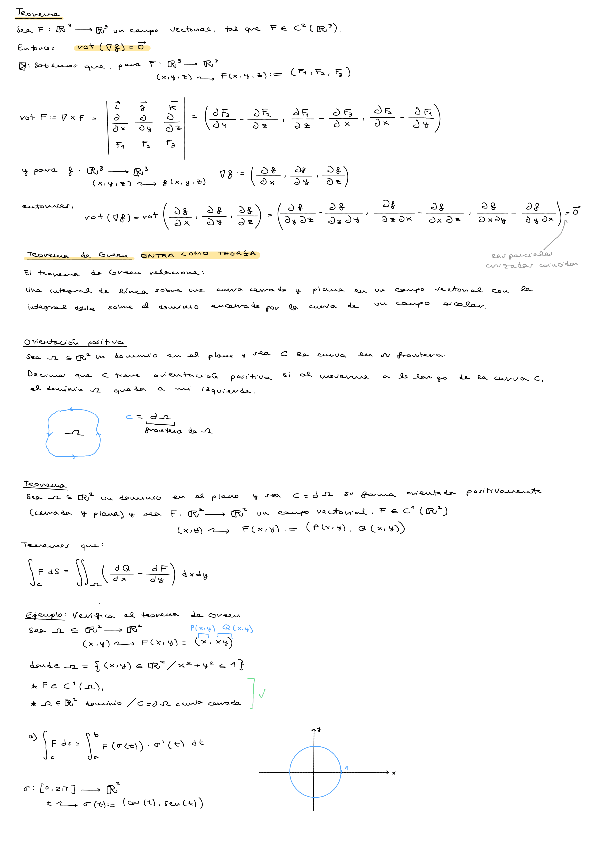 Teorema
Sea F: ℝ³ ⟶ ℝ³ un campo vectorial, tal que F ∈ C²(ℝ³).
Entonces: rot(∇f) = 0⃗
D: Sabemos que, para F: ℝ³ ⟶ ℝ³
(x,y,z) ⟿ F(x,y,z) := (F₁, F₂, F₃)
rot F := ∇ × F = | i⃗ j⃗ k⃗ ; ∂/∂x ∂/∂y ∂/∂z ; F₁ F₂ F₃ | = (∂F₃/∂y - ∂F₂/∂z, ∂F₁/∂z - ∂F₃/∂x, ∂F₂/∂x - ∂F₁/∂y)
y para f: ℝ³ ⟶ ℝ³ ∇f := (∂f/∂x, ∂f/∂y, ∂f/∂z)
(x,y,z) ⟿ f(x,y,z)
entonces,
rot(∇f) = rot(∂f/∂x, ∂f/∂y, ∂f/∂z) = (∂f/∂y∂z - ∂f/∂z∂y, ∂f/∂z∂x - ∂f/∂x∂z, ∂f/∂x∂y - ∂f/∂y∂x) = 0⃗
las parciales
cruzadas coinciden
Teorema de Green ENTRA COMO TEORÍA
El teorema de Green relaciona:
Una integral de línea sobre una curva cerrada y plana en un campo vectorial con la
integral doble sobre el dominio encerrado por la curva de un campo escalar.
Orientación positiva
Sea Ω ⊆ ℝ² un dominio en el plano y sea C la curva en su frontera.
Decimos que C tiene orientación positiva si al moverme a lo largo de la curva C,
el dominio Ω queda a mi izquierda.
Ω
C = dΩ
frontera de Ω
Teorema
Sea Ω ⊆ ℝ² un dominio en el plano y sea C = dΩ su forma orientada positivamente
(cerrada y plana) y sea F: ℝ² ⟶ ℝ² un campo vectorial. F ∈ C¹(ℝ²)
(x,y) ⟿ F(x,y) := (P(x,y), Q(x,y))
Tenemos que:
∫_C F dS = ∬_Ω (dQ/dx - dF/dy) dxdy
Ejemplo: Verifica el teorema de Green
Sea Ω ⊆ ℝ² ⟶ ℝ² P(x,y) Q(x,y)
(x,y) ⟿ F(x,y) = (x, xy)
donde Ω = {(x,y) ∈ ℝ² / x² + y² ≤ 1}
* F ∈ C¹(Ω),
* Ω ⊆ ℝ² dominio / C = dΩ curva cerrada
✓
a) ∫_C F ds = ∫_a^b F(σ(t)) · σ'(t) dt
x
1
σ: [0, 2π] ⟶ ℝ²
t ⟿ σ(t) = (cos(t), sen(t))